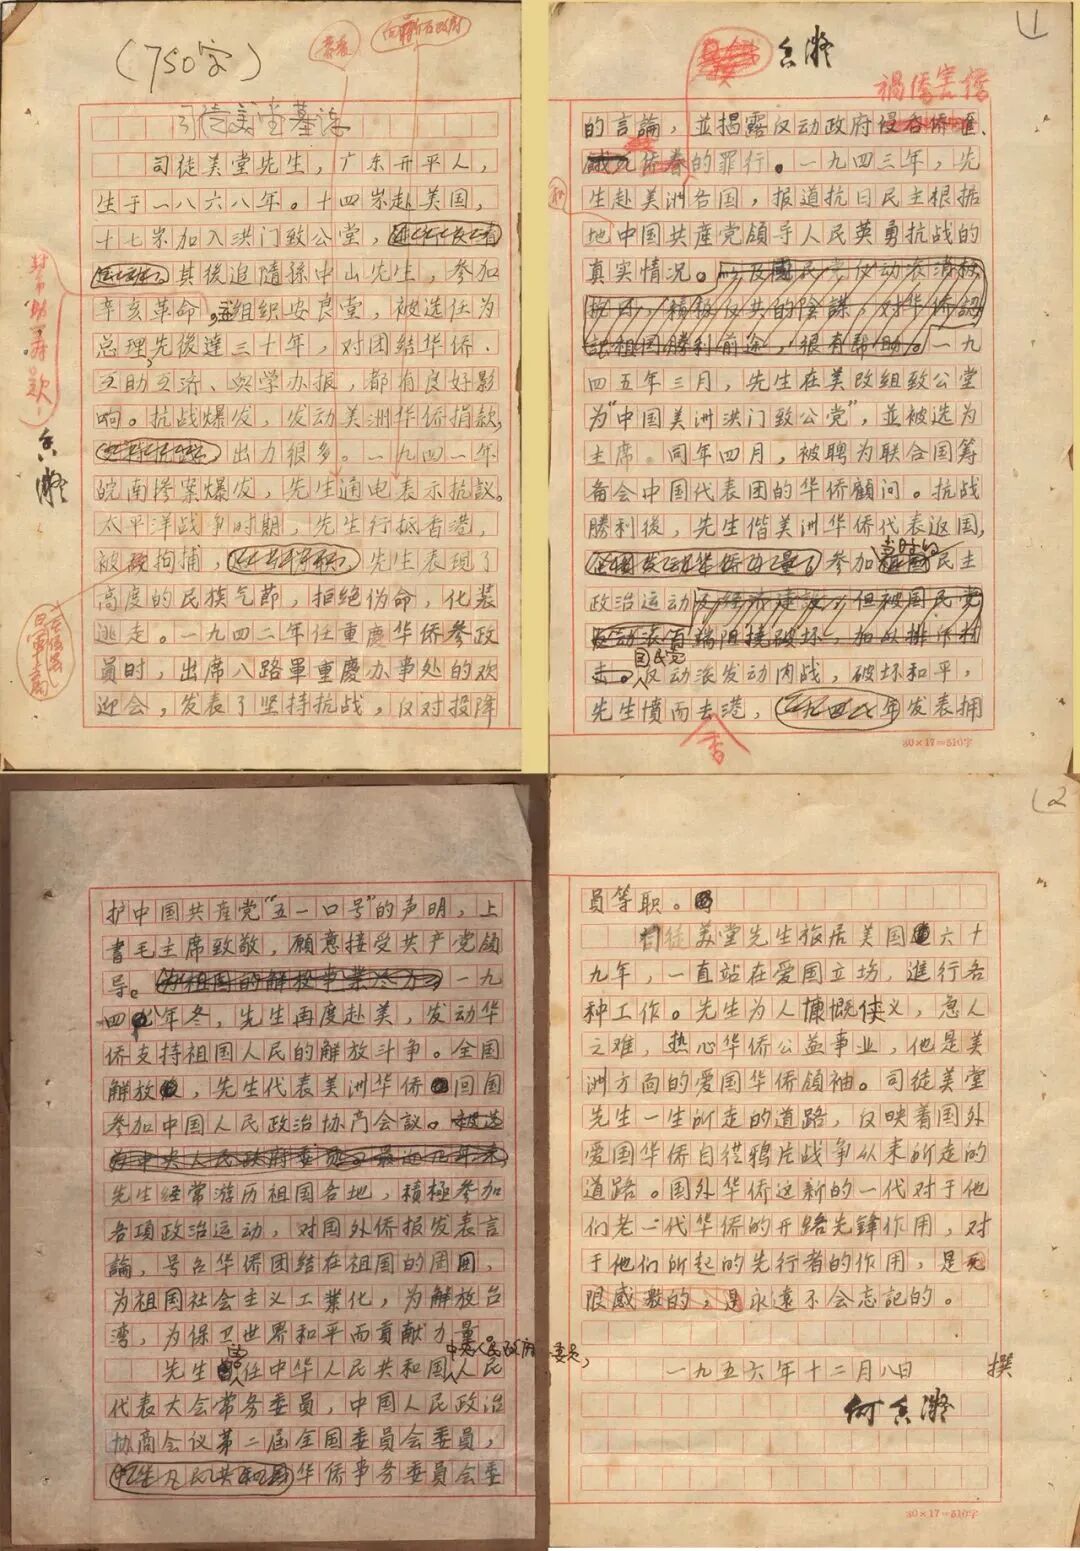 (750字)
司徒美堂墓志
司徒美堂先生，广东开平人，
生于一八六八年。十四岁赴美国，
十七岁加入洪门致公堂，
其後追隨孫中山先生，参加
辛亥革命，组织安良堂，被选任为
总理，先後達三十年，对团结华侨、
互助互济、兴学办报，都有良好影
响。抗战爆发，发动美洲华侨捐款，
出力很多。一九四一年
皖南惨案爆发，先生通电表示抗議。
太平洋战争时期，先生行抵香港，
被拘捕，先生表现了
高度的民族气節，拒绝伪命，化装
逃走。一九四二年任重慶华侨参政
員时，出席八路軍重慶办事处的欢
迎会，发表了坚持抗战，反对投降
香凝
(1
香凝
禍僑害僑
的言論，並揭露反动政府侵吞侨匯、
的罪行。一九四三年，先
生赴美洲各国，报道抗日民主根据
地中国共産党領导人民英勇抗战的
真实情况。以及國民党反动派消极
抗日，積极反共的陰謀，对华侨認
識祖国勝利前途，很有帮助。一九
四五年三月，先生在美改组致公堂
为“中国美洲洪门致公党”，並被选为
主席。同年四月，被聘为联合国筹
备会中国代表团的华侨顧问。抗战
勝利後，先生偕美洲华侨代表返国，
参加当时的民主
政治运动及经济建設，但被国民党
反动派百端阻撓破坏，加以排斥打
击。国民党反动派发动内战，破坏和平，
先生憤而去港，一九四八年发表拥
香
30×17=510字
护中国共産党“五一口号”的声明，上
書毛主席致敬，願意接受共产党領
导。为祖国的解放事業尽力。一九
四九年冬，先生再度赴美，发动华
侨支持祖国人民的解放斗争。全国
解放，先生代表美洲华侨回国
参加中国人民政治协商会議。被选
为中央人民政府委員
先生经常游历祖国各地，積極参加
各項政治运动，对国外侨报发表言
論，号召华侨团结在祖国的周围，
为祖国社会主义工業化，为解放台
湾，为保卫世界和平而貢献力量
先生任中华人民共和国中央人民政府委员，人民
代表大会常务委員，中国人民政治
协商会议第二届全国委員会委員，
华侨事务委員会委
(2
員等职。
司徒美堂先生旅居美国六十
九年，一直站在爱国立场，進行各
种工作。先生为人慷慨侠义，急人
之难，热心华侨公益事业，他是美
洲方面的爱国华侨領袖。司徒美堂
先生一生所走的道路，反映着国外
爱国华侨自從鴉片战争以来所走的
道路。国外华侨这新的一代对于他
们老一代华侨的开路先鋒作用，对
于他们所起的先行者的作用，是
很感激的，是永遠不会忘記的。
一九五六年十二月八日 撰
何香凝
30×17=510字